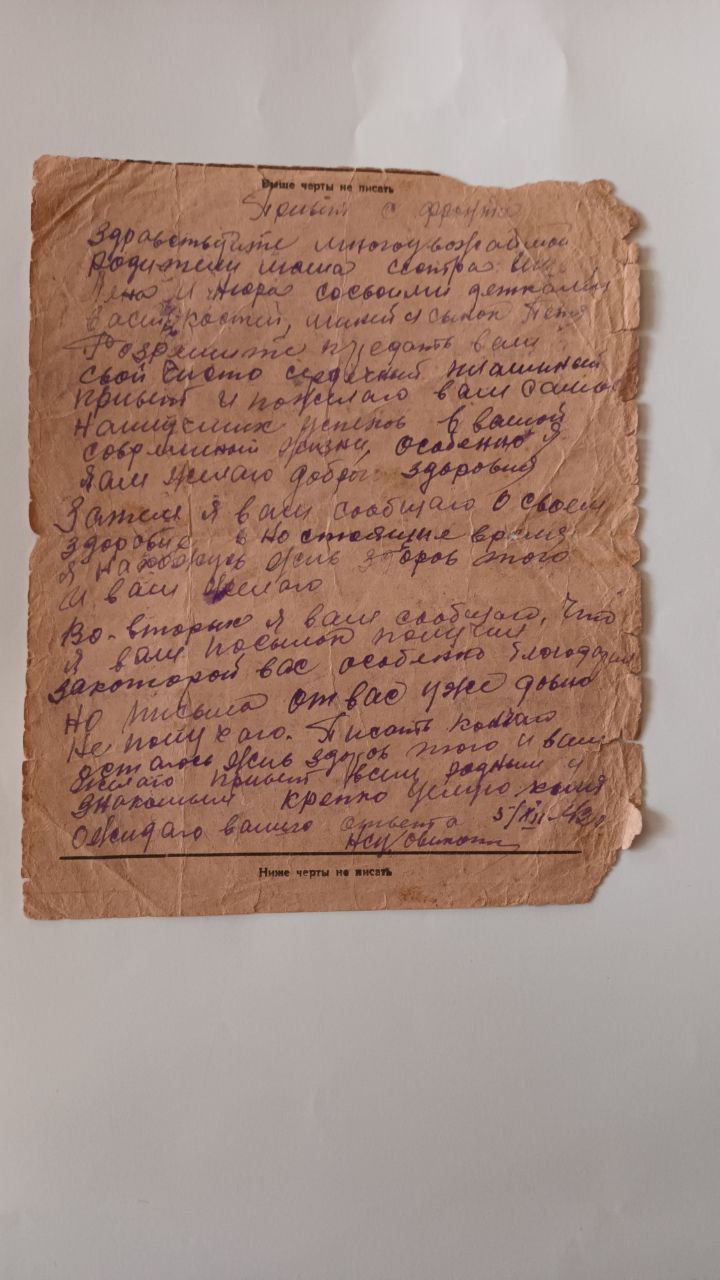 Выше черты не писать
Привет с фронта
Здравствуйте многоуважаемои
родители мама сестра
Лена и Нюра сосвоими детками
Васий костей, маней и сынок Петя
Розрешите предать вам
свой чисто сердечный пламиный
привет и пожелаю вам самых
наилучших успехов в вашой
современной жизни, особенно я
вам желаю доброго здоровия
Затем я вам сообщаю о своем
здоровие в ностоящие время
я нахожусь жив здоров того
и вам желаю
Во-вторых я вам сообщаю, что
я вам посылок получил
закоторой вас особенно благодарю
но письма от вас уже довно
не получаю. Писать кончаю
осталось жив здоров того и вам
желаю привет всем родным и
знакомым крепко целую
Ожидаю вашего ответа 5/XII 42 г
Ниже черты не писать